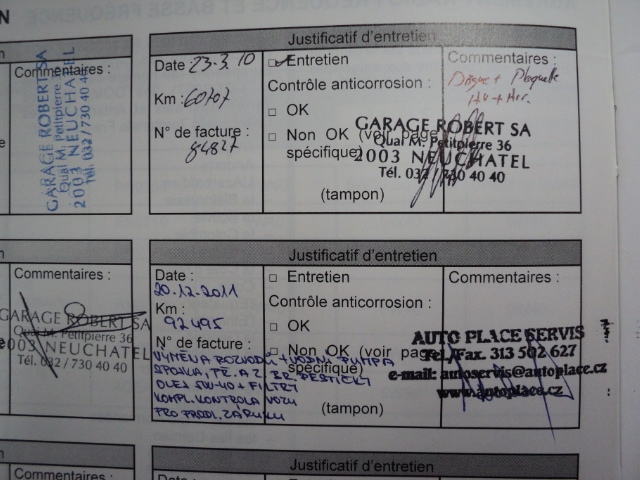 N
Justificatif d'entretien
Commentaires :
GARAGE ROBERT SA
Quai M. Petitpierre 36
2003 NEUCHATEL
Tél. 032 / 730 40 40
Date : 23-3.10
Km : 60707
N° de facture :
84827
Entretien
Contrôle anticorrosion :
OK
Non OK (voir page
spécifique)
(tampon)
Commentaires :
Disque + Plaquette
AV + Arr.
GARAGE ROBERT SA
Quai M. Petitpierre 36
2003 NEUCHATEL
Tél. 032 / 730 40 40
Justificatif d'entretien
Commentaires :
GARAGE ROBERT SA
Quai M. Petitpierre 36
2003 NEUCHATEL
Tél. 032 / 730 40 40
Date :
20.12.2011
Km :
92495
N° de facture :
VÝMĚNA ROZVODŮ + VODNÍ PUMPA
SPOJKA, PŘ. A Z. BR. DESTIČKY
OLEJ 5W-40 + FILTRY
KOMPL. KONTROLA VOZU
PRO PRODL. ZÁRUKU
Entretien
Contrôle anticorrosion :
OK
Non OK (voir page
spécifique)
(tampon)
Commentaires :
AUTO PLACE SERVIS
Tel./Fax. 313 502 627
e-mail: autoservis@autoplace.cz
www.autoplace.cz
Justificatif d'entretien
Commentaires :
Date :
Entretien
Commentaires :